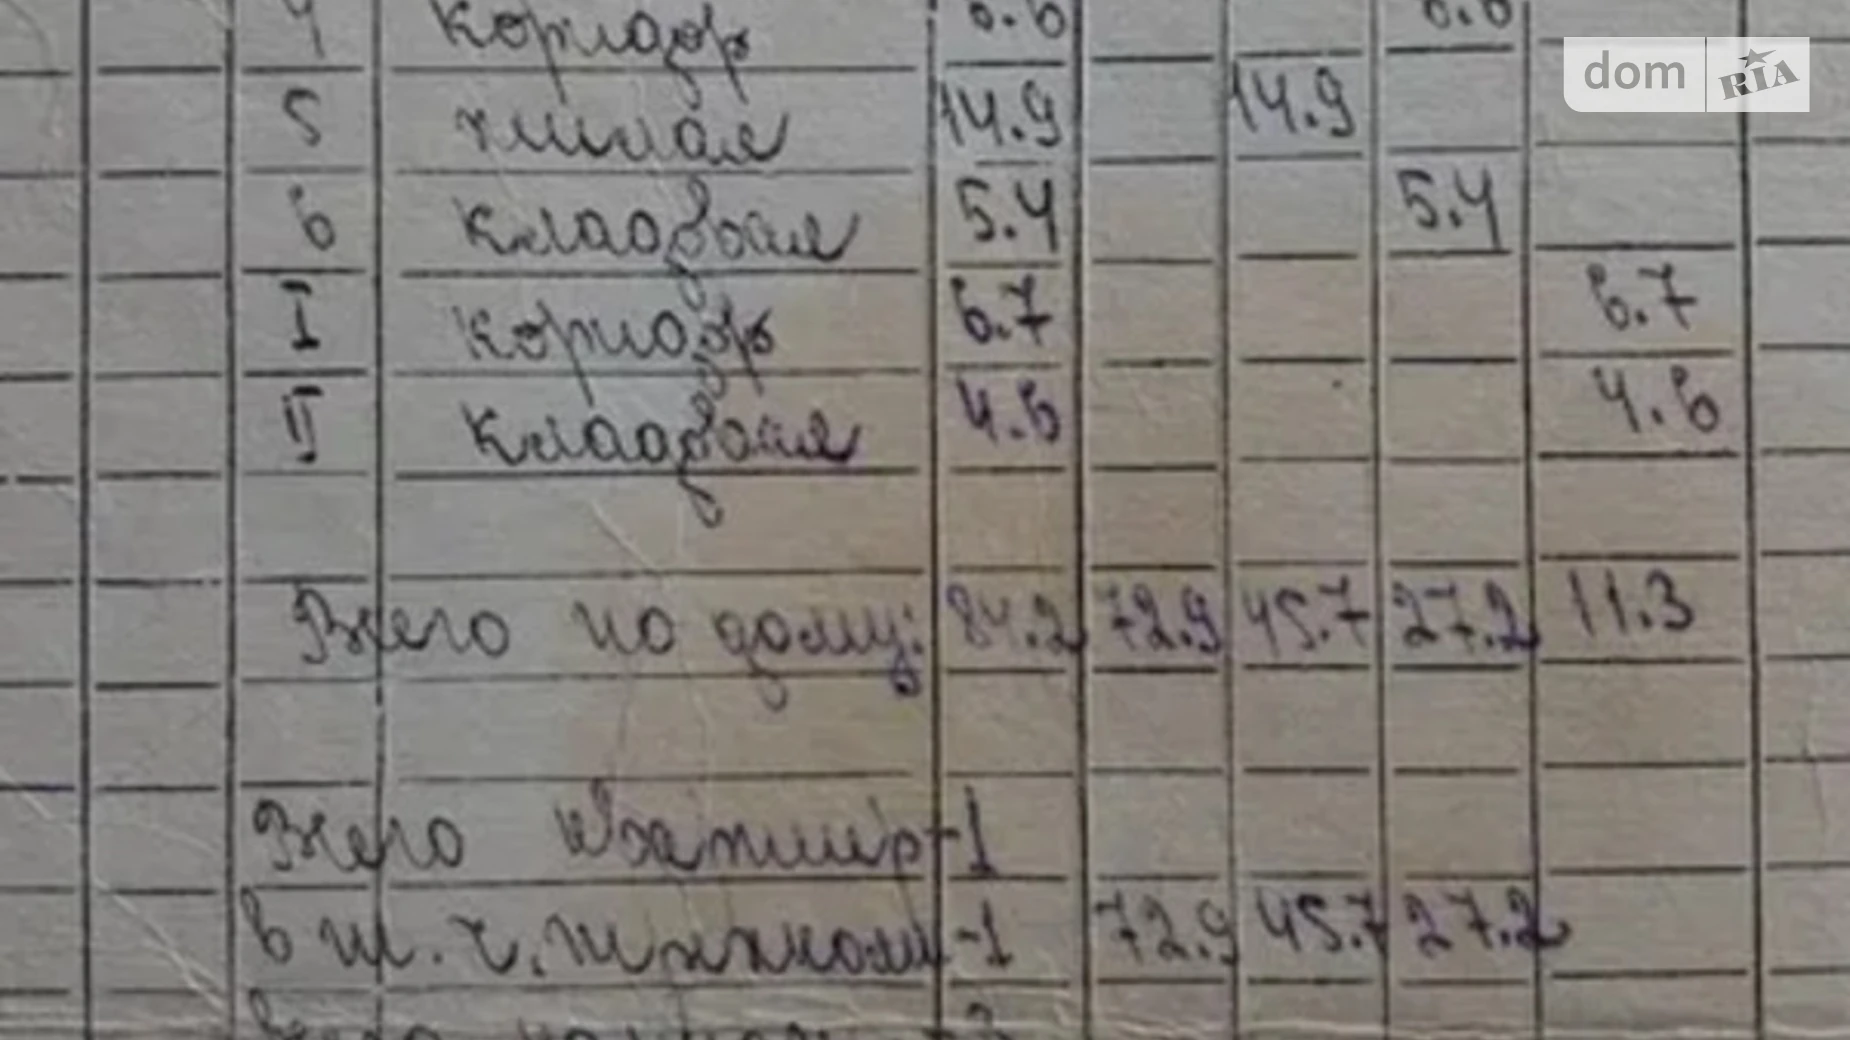 dom RIA
4 Коридор 6.6 6.6
5 жилая 14.9 14.9
6 кладовая 5.4 5.4
I коридор 6.7 6.7
II кладовая 4.6 4.6
Всего по дому: 84.2 72.9 45.7 27.2 11.3
Всего квартир-1
в т.ч. -1 72.9 45.7 27.2